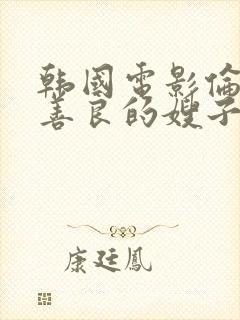 韩國電影倫
善良的嫂子
康廷鳳